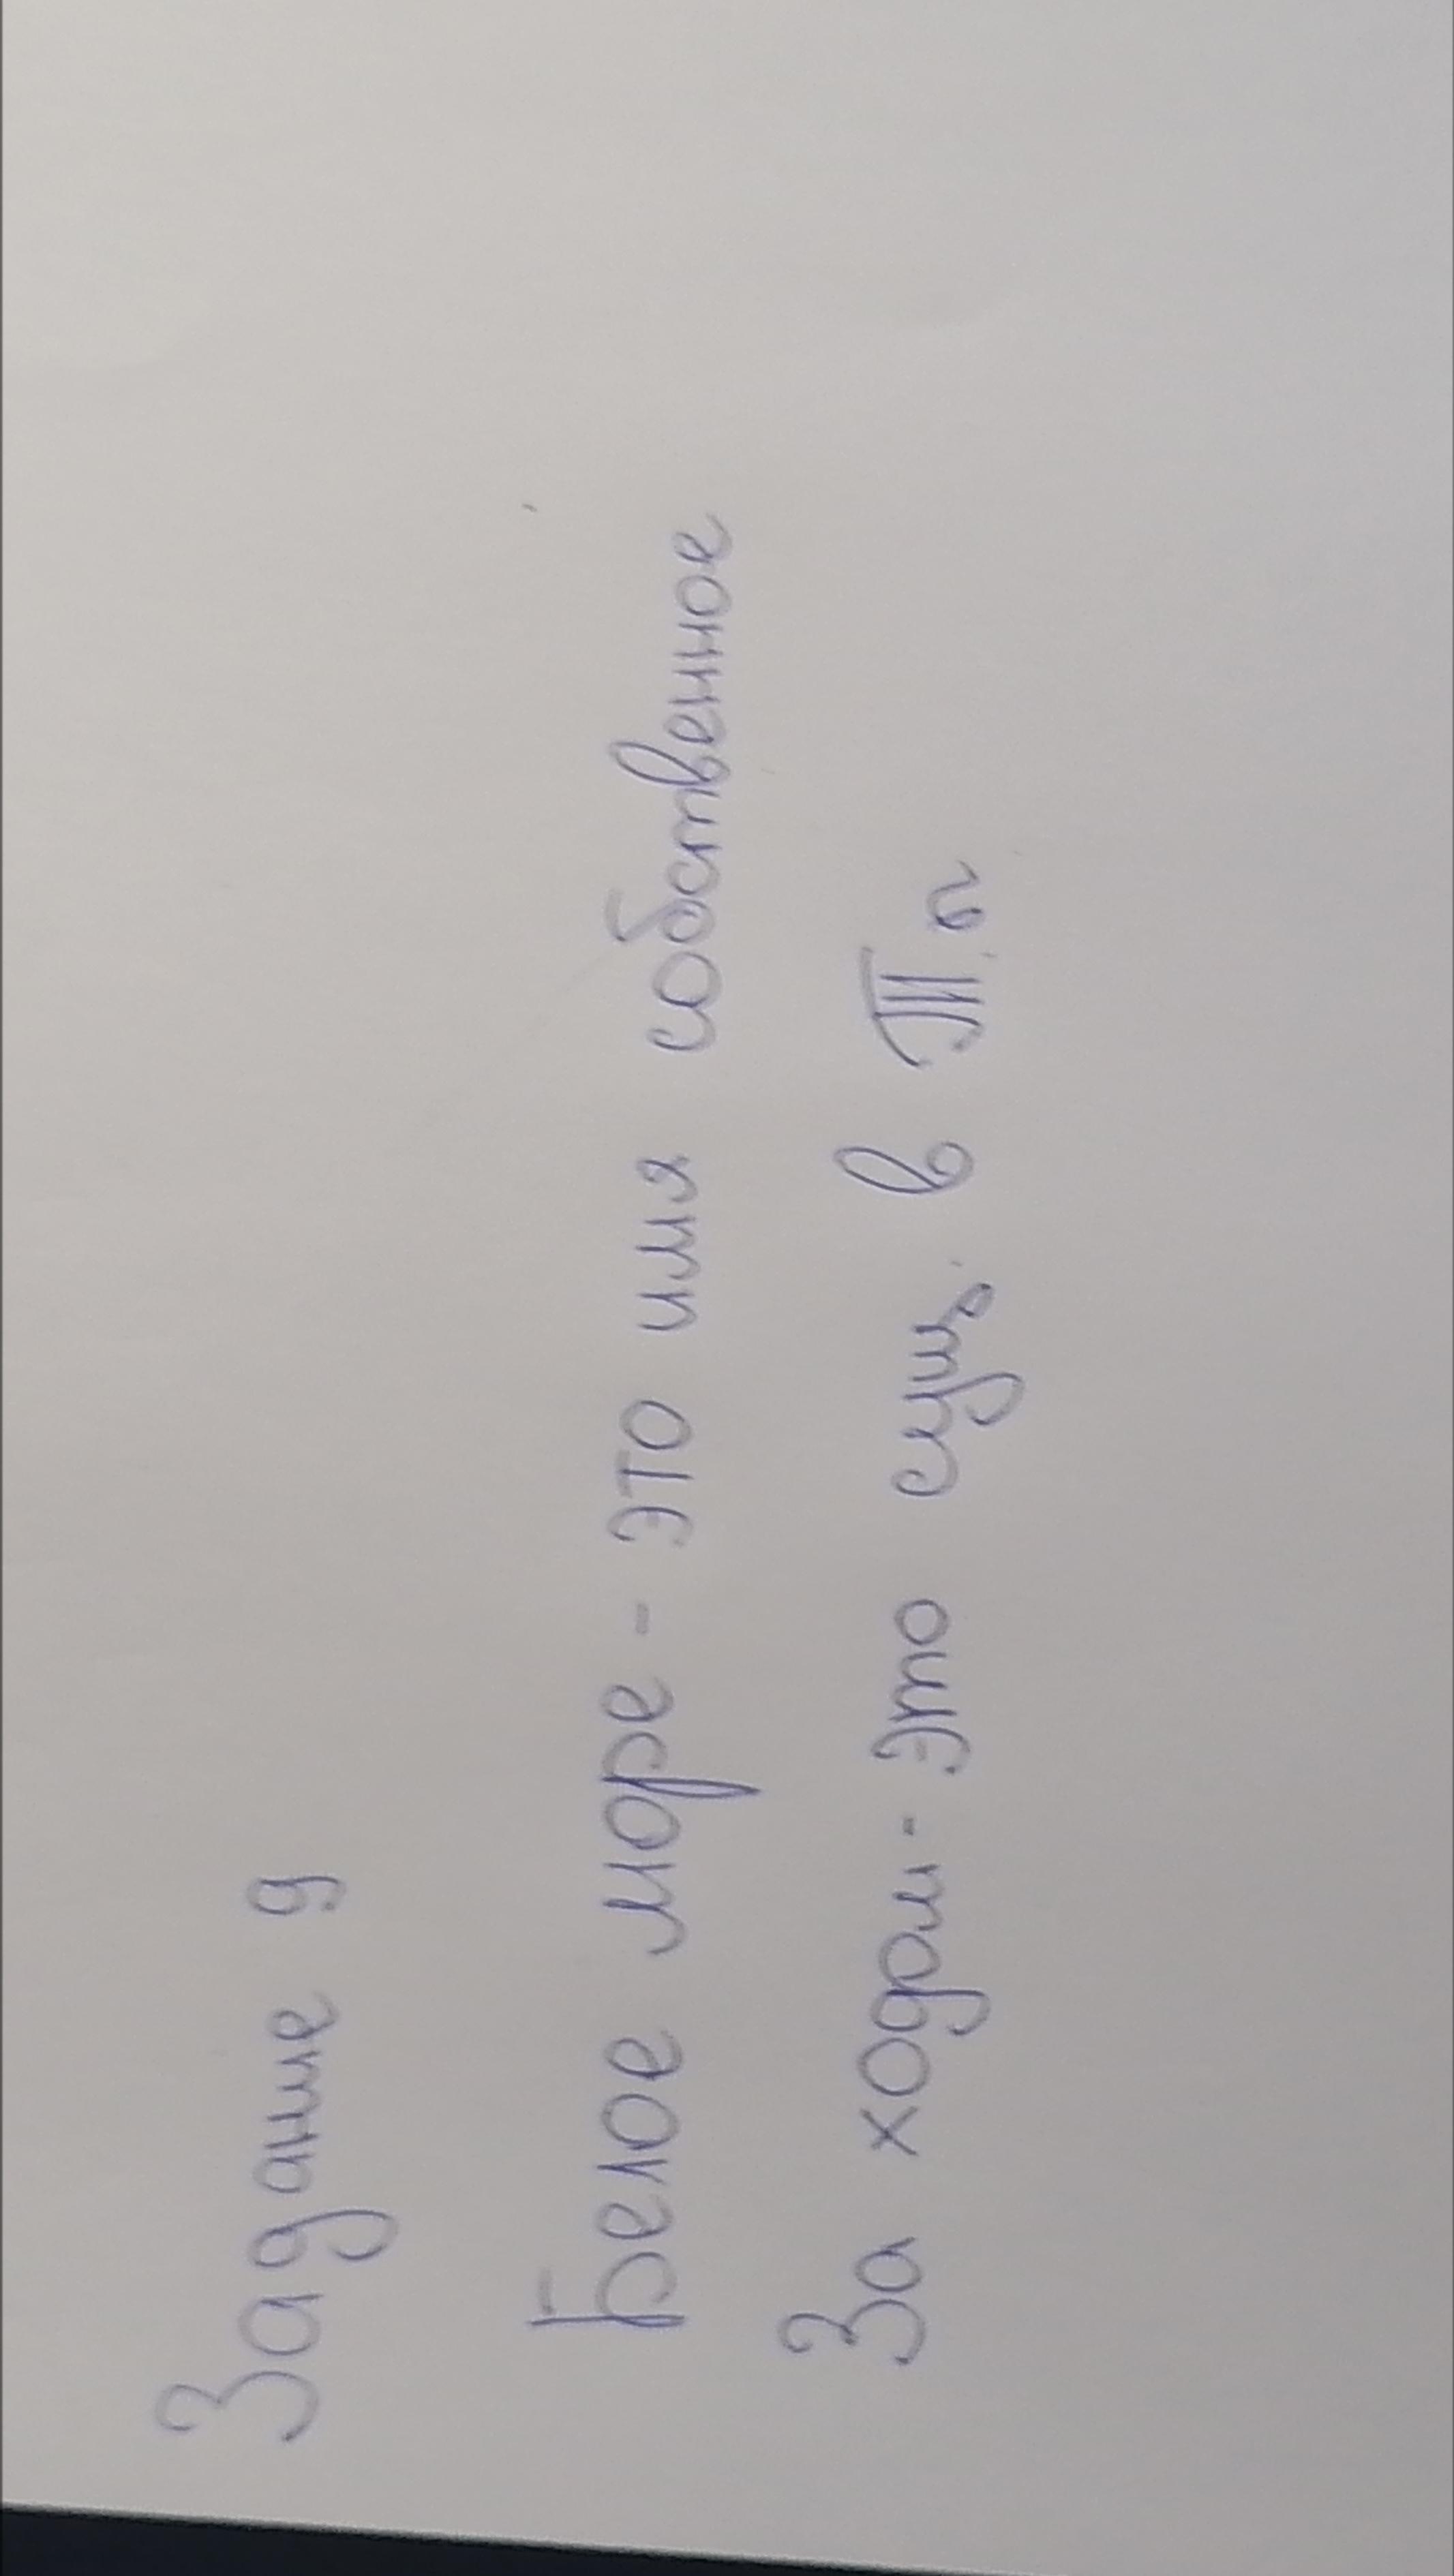 Задание 9
Белое море - это имя собственное
За ходом - это сущ. в Т.п